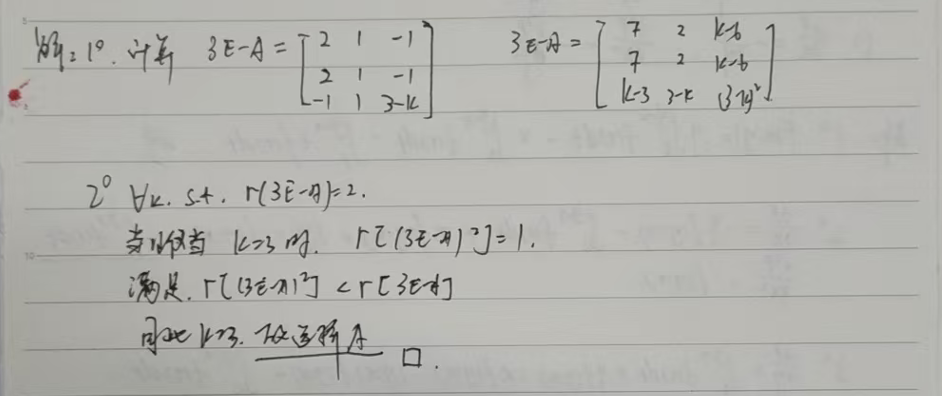 解:1°. 计算 3E-A = [2 1 -1; 2 1 -1; -1 1 3-k] 3E-A = [7 2 k-6; 7 2 k-6; k-3 3-k (3-k)²]
2° ∀k. s.t. r(3E-A)=2.
当且仅当 k=3 时. r[(3E-A)²]=1.
满足. r[(3E-A)²] < r[3E-A]
因此 k=3. 故选择 A □.